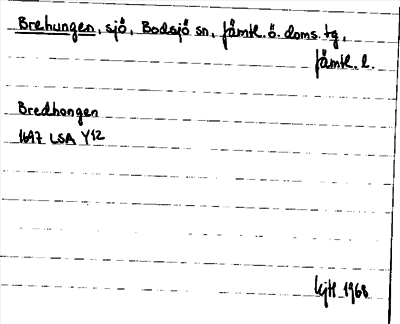 Brehungen, sjö, Bodsjö sn, Jämtl. ö. doms. tg,
Jämtl. l.
Bredhongen
1697 LSA Y12
1968